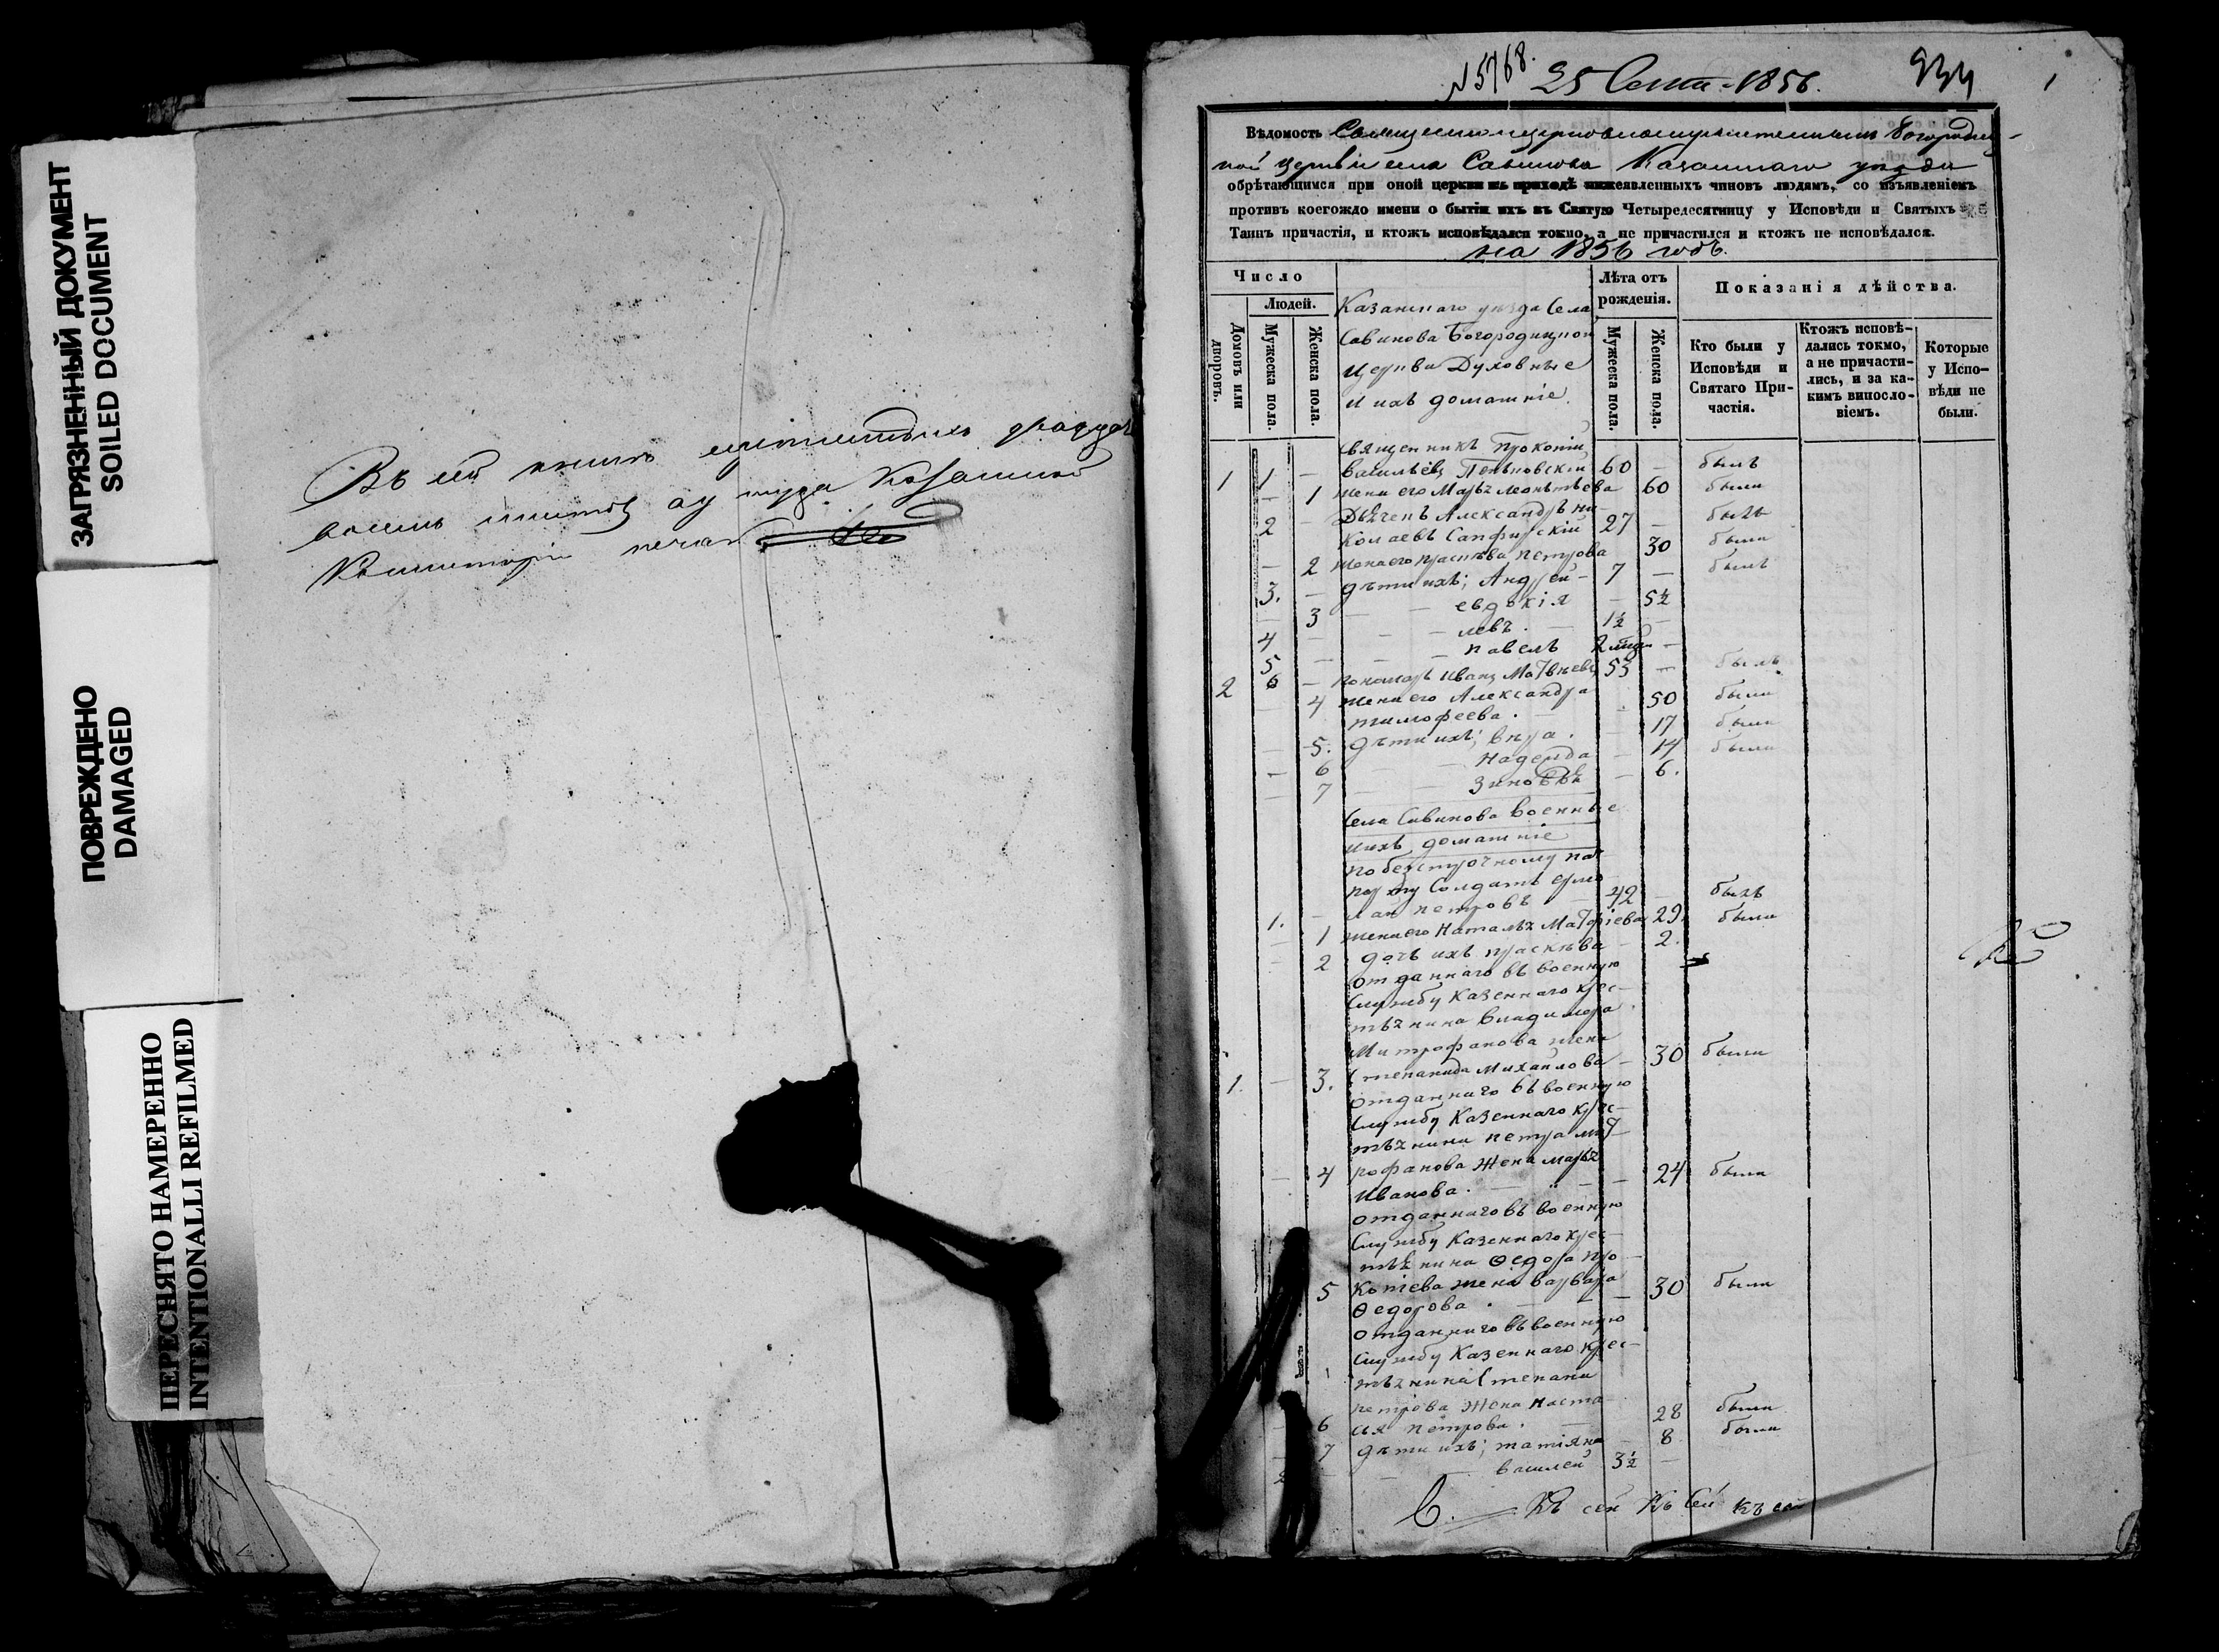 ЗАГРЯЗНЕННЫЙ ДОКУМЕНТ
SOILED DOCUMENT
ПОВРЕЖДЕНО
DAMAGED
ПЕРЕСНЯТО НАМЕРЕННО
INTENTIONALLI REFILMED
Въ сей книгѣ
восемь листовъ
печать
№5768. 25 Сент. 1856. 934 1
Вѣдомость Богородиц-
кой церкви села Савинова Казанскаго уѣзда
обрѣтающимся при оной церкви въ приходѣ нижеявленныхъ чиновъ людямъ, со изъявленіемъ
противъ коегождо имени о бытіи ихъ въ Святую Четыредесятницу у Исповѣди и Святыхъ
Таинъ причастія, и ктожъ исповѣдался токмо, а не причастился и ктожъ не исповѣдался.
на 1856 годъ.
Число
Домовъ или дворовъ.
Людей.
Мужеска пола.
Женска пола.
Казанскаго уѣзда Села
Савинова Богородицкой
Церкви Духовные
и ихъ домашніе.
Лѣта отъ рожденія.
Мужеска пола.
Женска пола.
Показанія дѣйства.
Кто были у Исповѣди и Святаго При-
частія.
Ктожъ исповѣ-
дались токмо,
а не причасти-
лись, и за ка-
кимъ виносло-
віемъ.
Которые
у Испо-
вѣди не
были.
Священникъ Прокопій
1 1 — Васильевъ 60 — былъ
— 1 жена его Марья Леонтьева 60 была
Дьяченъ Александръ Ни-
2 — колаевъ Сапфирскій 27 — былъ
— 2 жена его Прасковья Петрова 30 была
3. — дѣти ихъ; Андрей — 7 — былъ
— 3 — — евдокія — 5½
4 — — — левъ. — 1½ —
5 — — — павелъ 2 —
2 6 — пономарь Иванъ Матвѣевъ 53 — былъ
— 4 жена его Александра
тимофеева. — 50 была
— 5. дѣти ихъ; вѣра. — 17 была
— 6 — надежда — 14 была
— 7 — — — 6.
Села Савинова Военные
и ихъ домашніе
по безсрочному пас-
порту Солдатъ ермо-
1. — лай петровъ — 42 — былъ
— 1 жена его Наталья 29. была
— 2 дочь ихъ прасковья — 2.
отданнаго въ военную
Службу Казеннаго крес-
тьянина Владимера
Митрофанова жена
1. — 3. Степанида Михайлова — 30 была
отданнаго въ военную
Службу Казеннаго крес-
тьянина петра мит-
— 4 рофанова Жена марья
Иванова. — — — 24 была
отданнаго въ военную
Службу Казеннаго крес-
тьянина Ѳедора про-
5 копіева жена варвара
Ѳедорова. — — — 30 была
отданнаго въ военную
Службу Казеннаго крес-
тьянина Степана
петрова Жена наста-
— 6 сья петрова. — 28 была
— 7 дѣти ихъ; татіяна — 8 была
2 — — — василей 3½ —
Къ сей Къ Сей къ сей